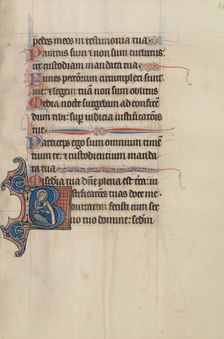 pedes meos in testimonia tua
Paratus sum et non sum turbatus: ut
custodiam mandata tua
Funes peccatorum circumplexi sunt
me: et legem tuam non sum oblitus
Media nocte surgebam ad confiten
dum tibi: sup iudicia iustificationis
tue
Particeps ego sum omnium timen
tium te: et custodientium manda
ta tua
Misericordia tua dñe plena est terra: iu
stificationes tuas doce me
Bonitatem fecisti cum ser
uo tuo domine: secdm